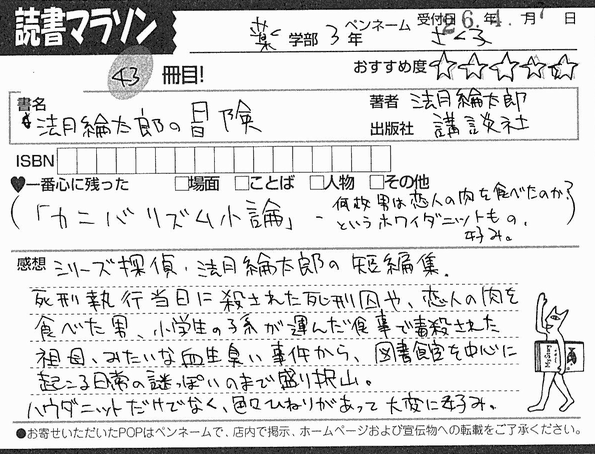 読書マラソン
薬学部 3年 ペンネーム さくら 受付日 26年4月 日
おすすめ度 ☆☆☆☆☆
43 冊目!
書名 法月綸太郎の冒険
著者 法月綸太郎
出版社 講談社
ISBN
♥一番心に残った □場面 □ことば □人物 □その他
(「カニバリズム小論」- 何故男は恋人の肉を食べたのか?
というホワイダニットもの。
好み。)
感想 シリーズ探偵・法月綸太郎の短編集。
死刑執行当日に殺された死刑囚や、恋人の肉を
食べた男、小学生の子系が運んだ食事で毒殺された
祖母、みたいな血生臭い事件から、図書館を中心に
起こる日常の謎っぽいのまで盛り沢山。
ハウダニットだけでなく、色々ひねりがあって大変に好み。
●お寄せいただいたPOPはペンネームで、店内で掲示、ホームページおよび宣伝物への転載をご了承ください。